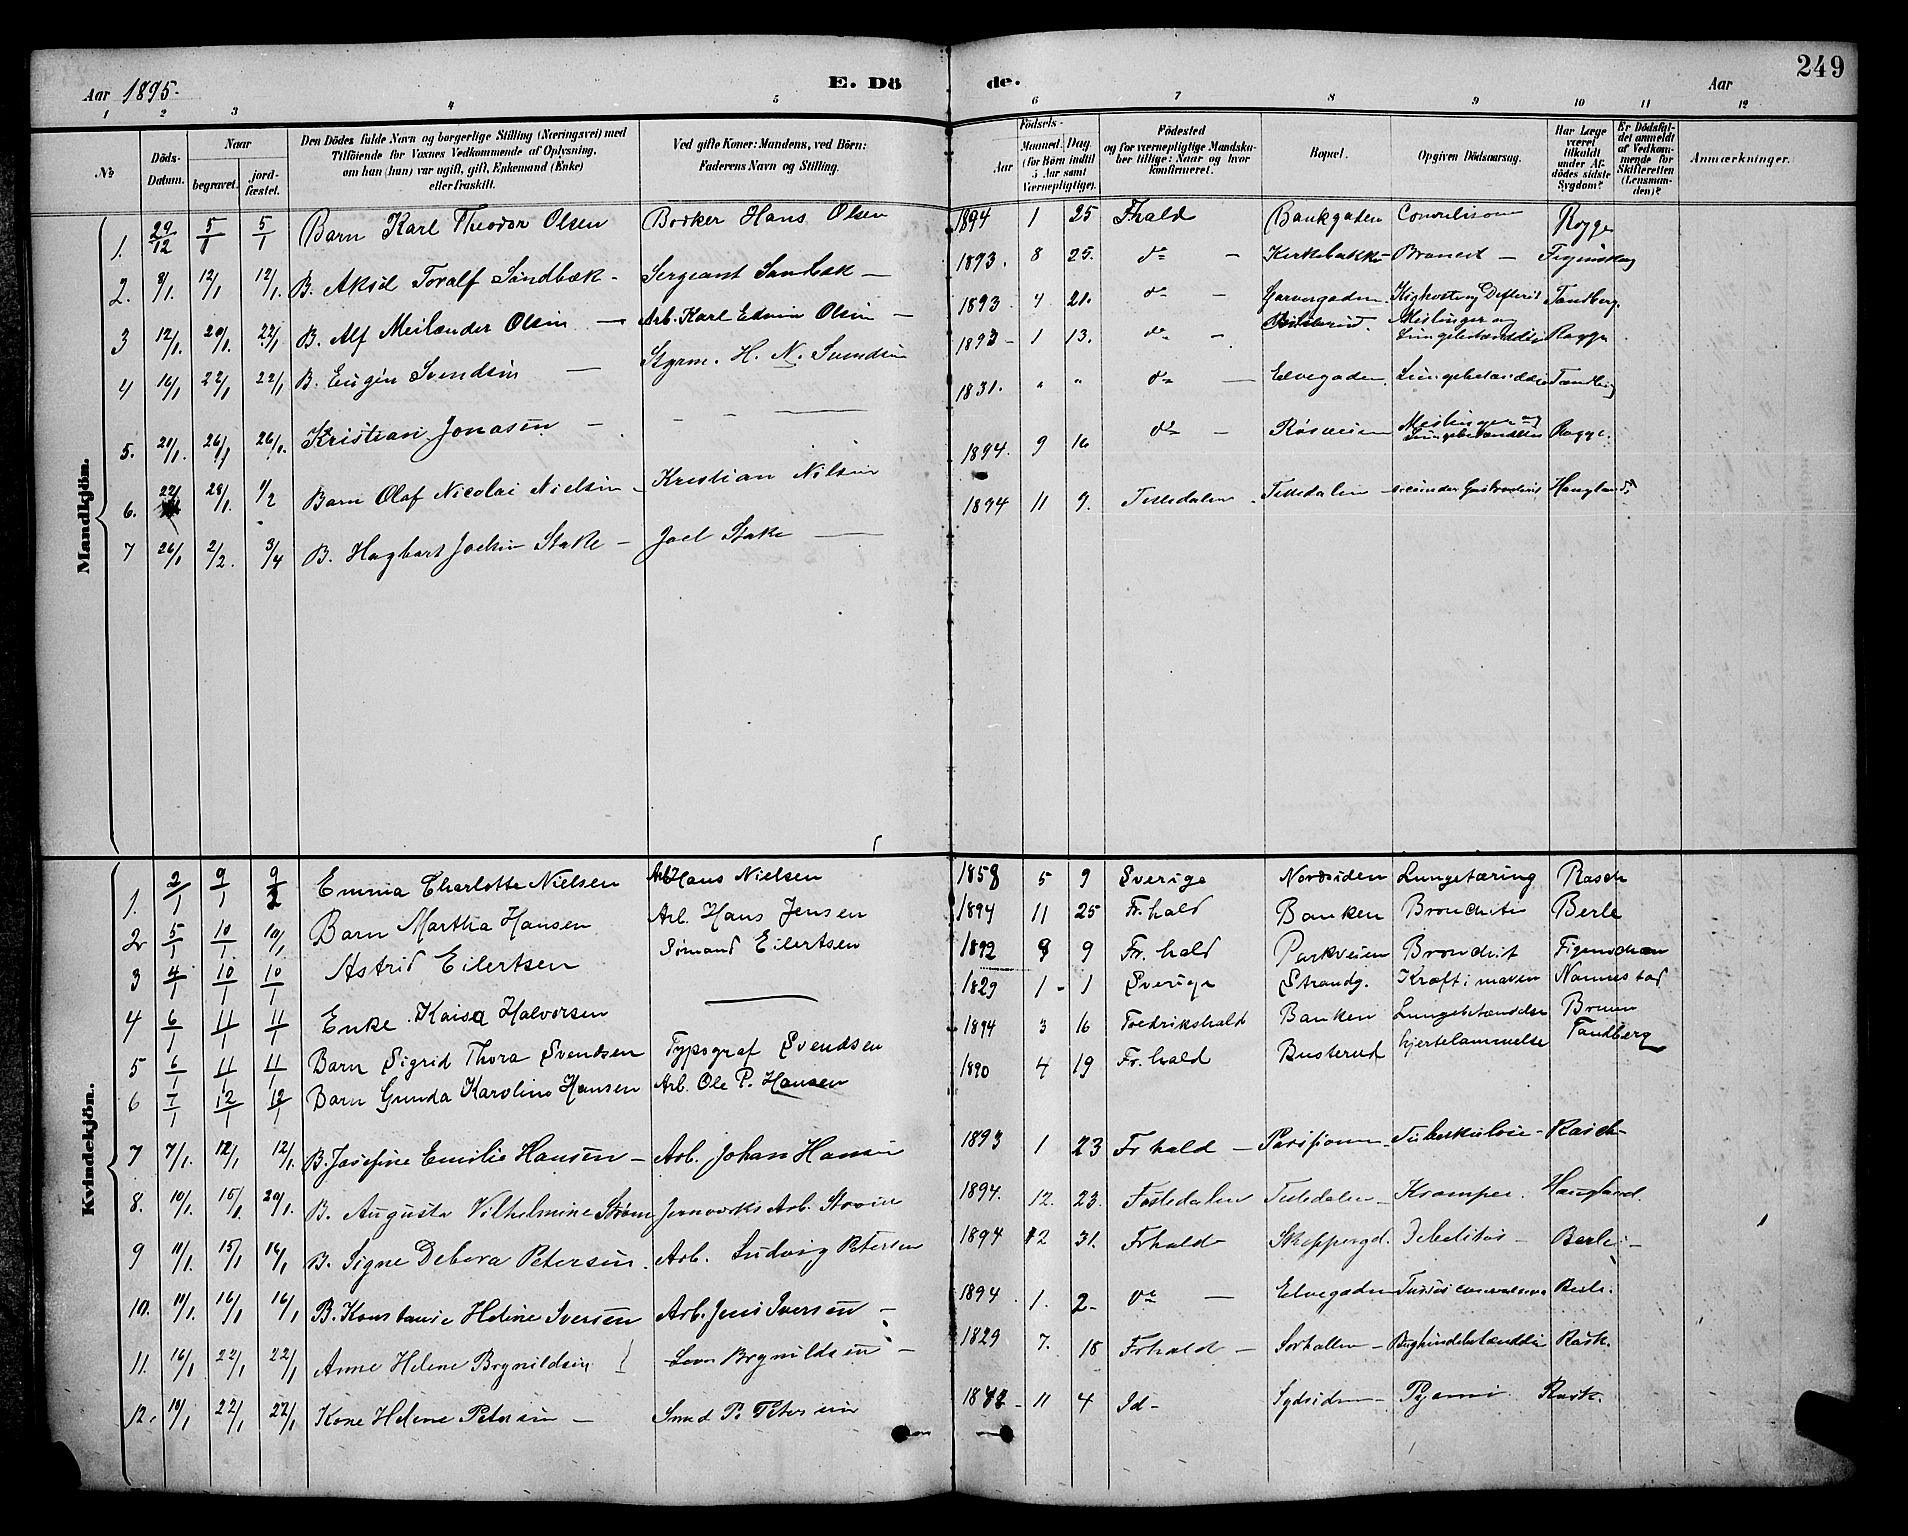 249
Aar 1895. E. Dö de. Aar
1 2 3 4 5 6 7 8 9 10 11 12
No
Döds-Datum.
Naar
begravet.
jord-fæstet.
Den Dödes fulde Navn og borgerlige Stilling (Næringsvei) med
Tilföiende for Voxnes Vedkommende af Oplysning,
om han (hun) var ugift, gift, Enkemand (Enke)
eller fraskilt.
Ved gifte Koner: Mandens, ved Börn:
Faderens Navn og Stilling.
Födsels-
Aar
Maaned. Dag.
(for Börn indtil
5 Aar samt
Værnepligtige).
Födested
og for værnepligtige Mandska-
ber tillige: Naar og hvor
konfirmeret.
Bopæl.
Opgiven Dödsaarsag.
Har Læge
været
tilkaldt
under Af-
dödes sidste
Sygdom?
Er Dödsfal-
det anmeldt
af Vedkom-
mende for
Skifteretten
(Lensman-
den)?
Anmærkninger.
Mandkjön.
1. 29/12 5/1 5/1 Barn Karl Theodor Olsen Hans Olsen 1894 1 25 Fhald Bankgaden Rogge
2. 8/1. 12/1 12/1. B. Aksel Toralf Sandbæk - Sergeant Sandbæk - 1893. 8 25. do - Kirkebakke Branert -
3 12/1. 20/1. 22/1 B. Alf Meilænder Olsen - Arb. Karl Edvin Olsen - 1893 4 21. do - Garvergaden Kighoste og Defterit Tandberg.
4 16/1 22/1 22/1 B. Eugen Svendsen - Styrm. H. N. Svendsen 1893 - 1 13. do - Meslinger og Lungebetændelse Rogge
5. 21/1. 26/1 26/1. Kristian Jonasen - - - 1831. " " do - Elvegaden. Lungebetændelse Tandberg
6. 22/1 28/1. 1/2 Barn Olaf Nicolai Nielsen - Kristian Nilsen 1894. 9 16 do - Rosveien Meslinger og Lungebetændelse Rogge.
7 26/1 2/2. 3/4 B. Hagbart Joelsen Stake - Joel Stake - 1894 11 9. Tistedalen. Tistedalen Haugland
Kvindekjön.
1. 2/1 9/1 9/1 Emma Charlotte Nielsen Arb. Hans Nielsen 1858 5 9 Sverige Nordsiden Lungetæring Rasch
2 5/1 10/1 10/1 Barn Martha Hansen Arb. Hans Jensen 1894 11 25 Fr. hald Banken Bronchit Berle
3 4/1 10/1 10/1 Astrid Eilertsen Sømand Eilertsen 1892 8 9 Fr. hald Parkveien Bronchit
4 6/1 11/1 11/1 Enke Kaisa Halvorsen - 1829 1 - 1 Sverige Strandg. Kræft i maven Nannestad
5 6/1 11/1 11/1 Barn Sigrid Thora Svendsen Typograf Svendsen 1894 3 16 Fredrikshald Banken Lungebetændelse Bruun
6 7/1 12/1 12/1 Barn Gunda Karoline Hansen Arb. Ole P. Hansen 1890 4 19 Fr. hald Busterud hjertelammelse Tandberg
7 7/1. 12/1 12/1. B. Josefine Emilie Hansen - Arb. Johan Hansen 1893 1 23 Fr hald - Tuberkulose - Rasch
8. 10/1. 15/1. 20/1. B. Augusta Vilhelmine Strøm Jernverks Arb. Strøm 1894. 12. 23. Tistedalen Tistedalen - Kramper. Haugland.
9 11/1. 15/1 16/1 B. Signe Debora Petersen. Arb. Ludvig Petersen 1894 12 31. Frhald Skeppergd. Debelitas - Berle -
10. 11/1. 16/1 16/1 B. Konstanse Helene Iversen Arb. Jens Iversen - 1894. 1. 2 - do - Elvegaden Berle.
11. 16/1 22/1 22/1 Anne Helene Brynildsen Brynildsen - 1829 7. 18 Frhald - Sorhallen - Rask.
12. 18/1. 22/1 22/1 Kone Helene Petersen - Smed P. Petersen 11 4 Id - Sydsiden - Pyæmi Rask.